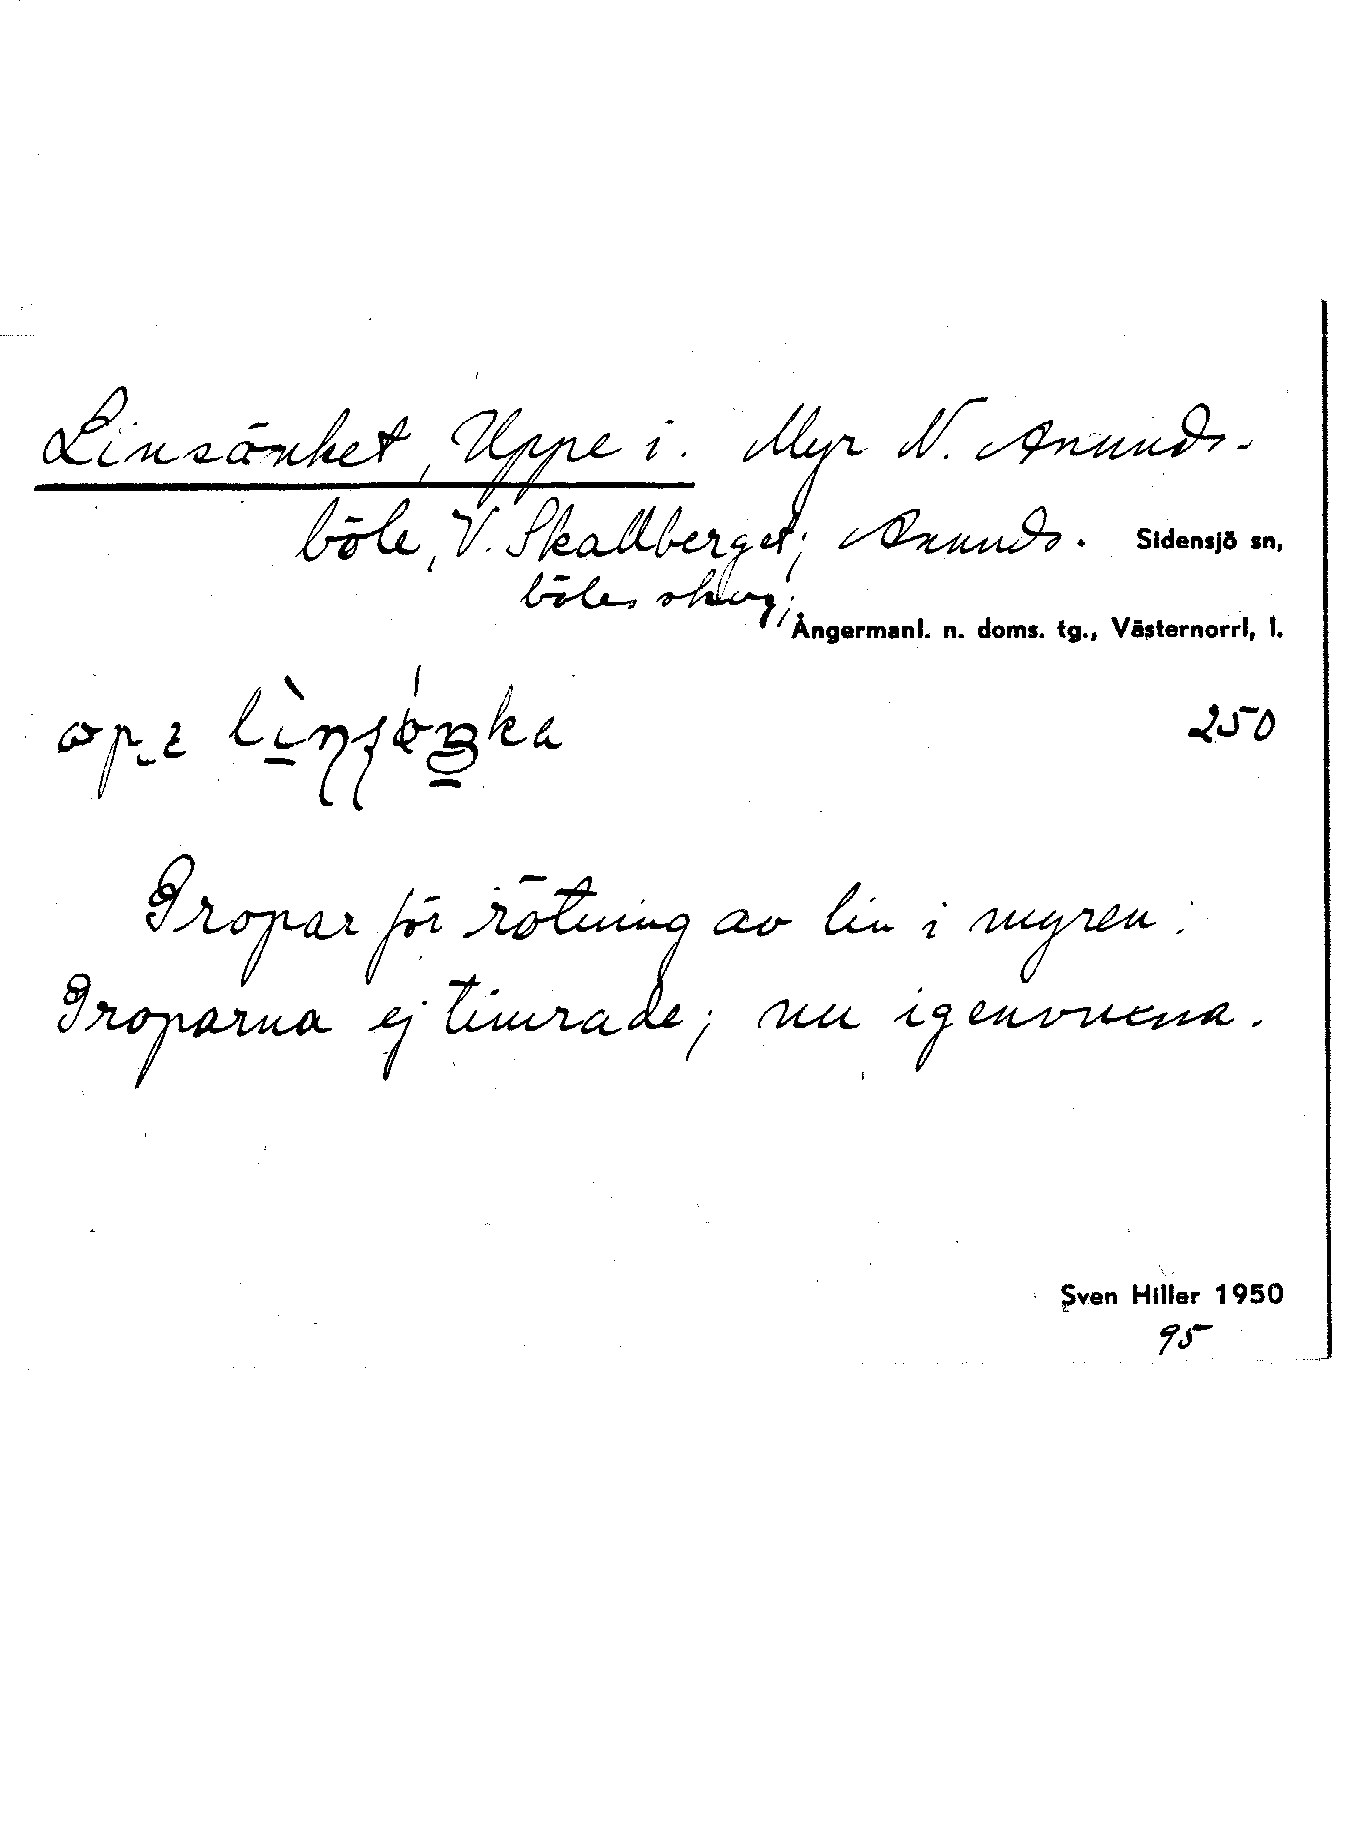 Linsänket, Uppe i. Myr N. Anunds-
böle, V. Skallberget; Anunds-
Sidensjö sn,
böles skog;
Ångermanl. n. doms. tg., Västernorrl, l.
250
Gropar för rötning av lin i myren.
Groparna ej timrade; nu igenvuxna.
Sven Hiller 1950
95